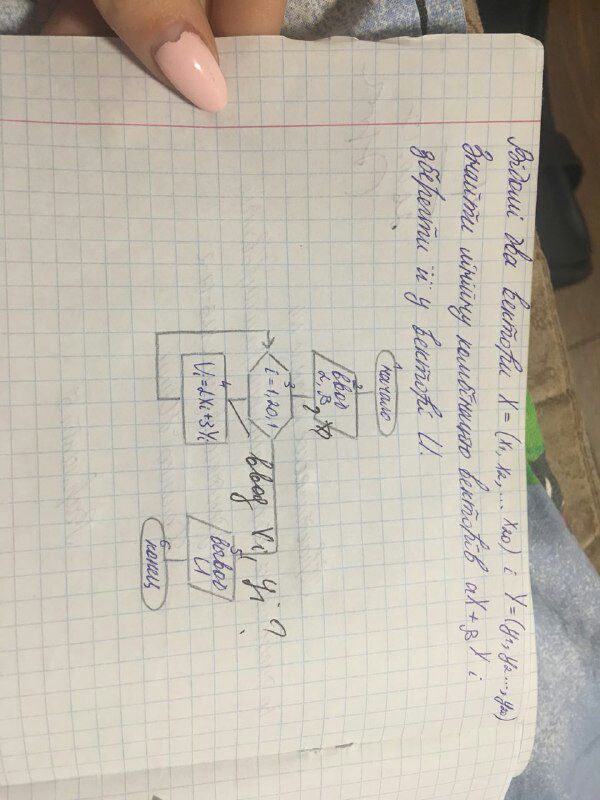 Відомі два вектори X = (x₁, x₂, ... x₂₀) і Y = (y₁, y₂ ..., y₂₀)
Знайти лінійну комбінацію векторів αX + βY і
зберегти її у векторі U.
1 начало
2 ввод
α, β
3 i = 1, 20, 1
ввод xi, yi ?
4 Ui = αXi + βYi
5 вывод
U
6 конец